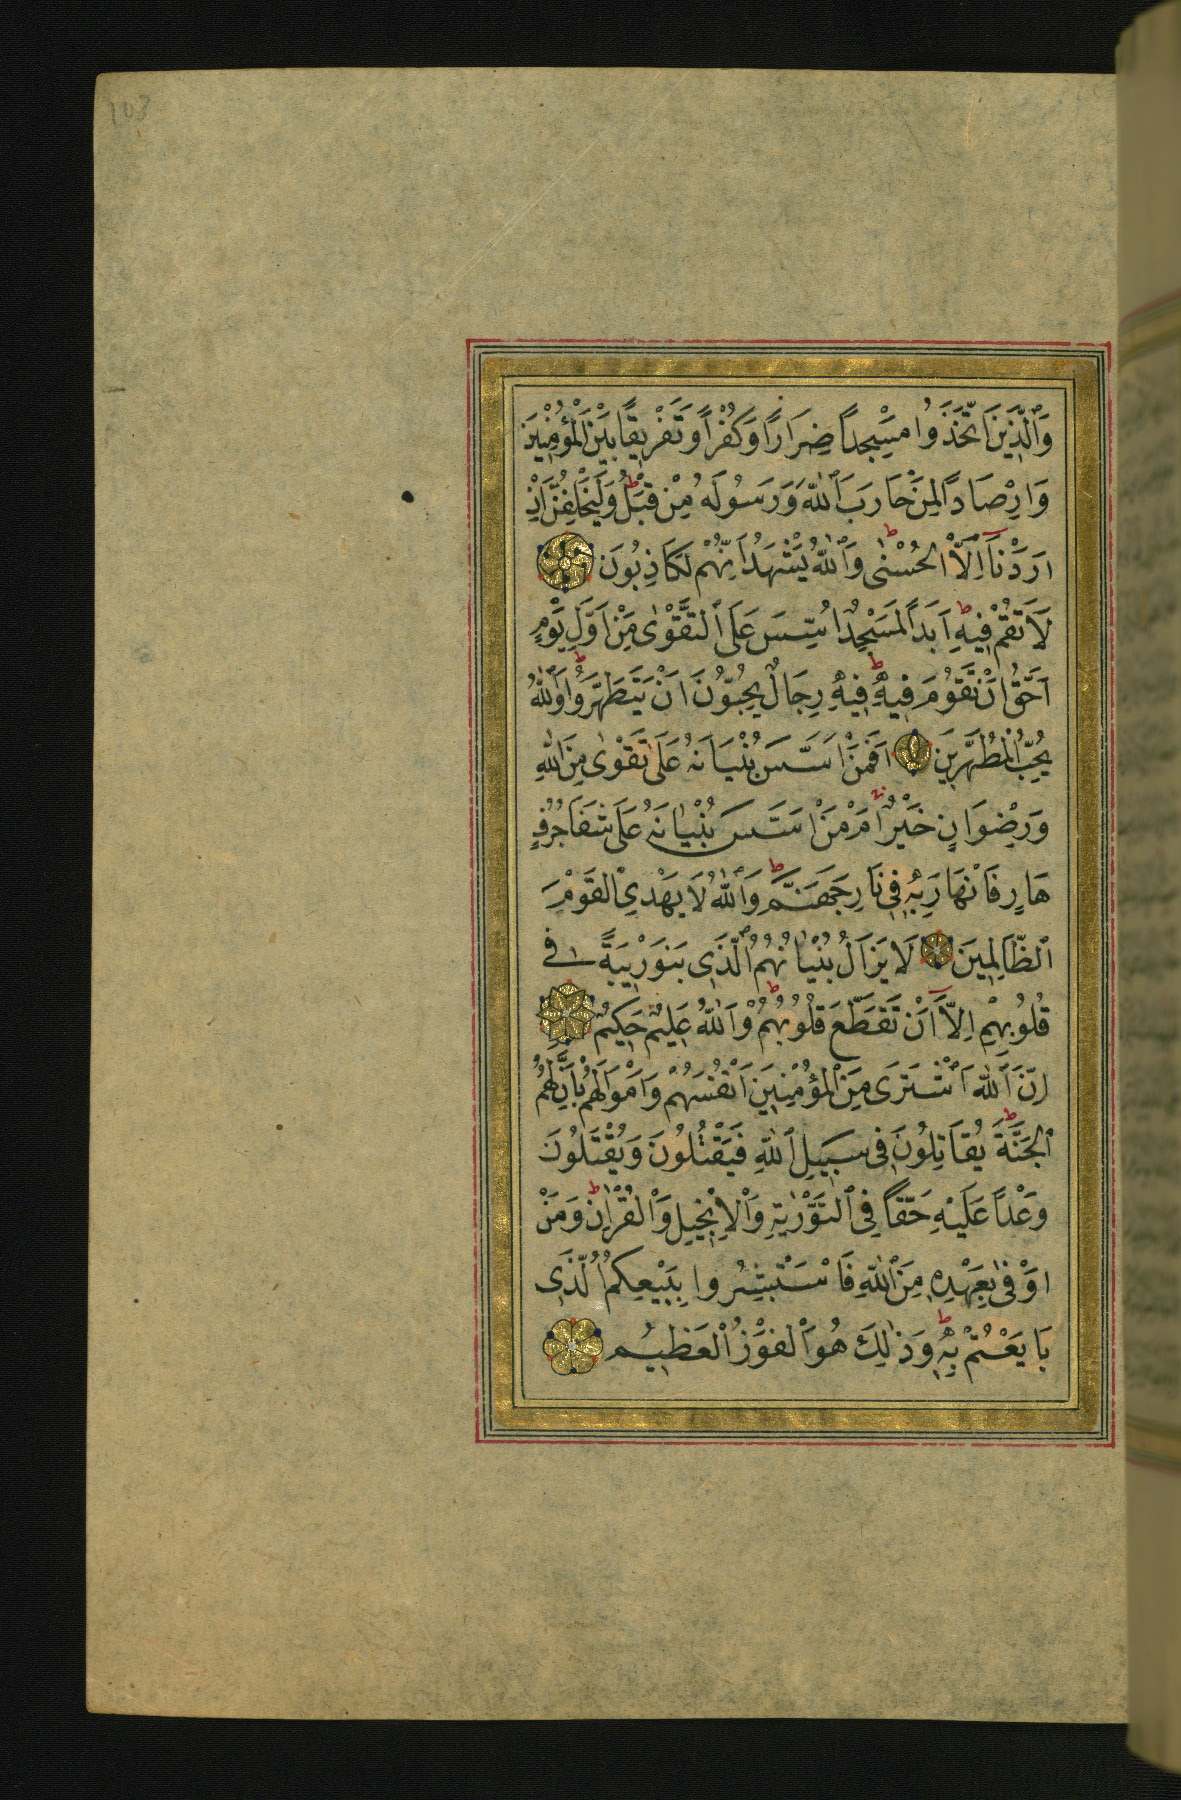 103
وَالَّذِينَ اتَّخَذُوا مَسْجِداً ضِرَاراً وَكُفْراً وَتَفْرِيقاً بَيْنَ الْمُؤْمِنِينَ
وَاِرْصَاداً لِمَنْ حَارَبَ اللّٰهَ وَرَسُولَهُ مِنْ قَبْلُ ط وَلَيَحْلِفُنَّ اِنْ
اَرَدْنَٓا اِلَّا الْحُسْنٰى ط وَاللّٰهُ يَشْهَدُ اِنَّهُمْ لَكَاذِبُونَ
لَا تَقُمْ فِيهِ اَبَداً ط لَمَسْجِدٌ اُسِّسَ عَلَى التَّقْوٰى مِنْ اَوَّلِ يَوْمٍ
اَحَقُّ اَنْ تَقُومَ فِيهِ ط فِيهِ رِجَالٌ يُحِبُّونَ اَنْ يَتَطَهَّرُوا ط وَاللّٰهُ
يُحِبُّ الْمُطَّهِّرِينَ اَفَمَنْ اَسَّسَ بُنْيَانَهُ عَلٰى تَقْوٰى مِنَ اللّٰهِ
وَرِضْوَانٍ خَيْرٌ اَمْ مَنْ اَسَّسَ بُنْيَانَهُ عَلٰى شَفَا جُرُفٍ
هَارٍ فَانْهَارَ بِهِ فِى نَارِ جَهَنَّمَ ط وَاللّٰهُ لَا يَهْدِى الْقَوْمَ
الظَّالِمِينَ لَا يَزَالُ بُنْيَانُهُمُ الَّذِى بَنَوْا رِيبَةً فِى
قُلُوبِهِمْ اِلَّٓا اَنْ تَقَطَّعَ قُلُوبُهُمْ ط وَاللّٰهُ عَلِيمٌ حَكِيمٌ
اِنَّ اللّٰهَ اشْتَرٰى مِنَ الْمُؤْمِنِينَ اَنْفُسَهُمْ وَاَمْوَالَهُمْ بِاَنَّ لَهُمُ
الْجَنَّةَ ط يُقَاتِلُونَ فِى سَبِيلِ اللّٰهِ فَيَقْتُلُونَ وَيُقْتَلُونَ
وَعْداً عَلَيْهِ حَقّاً فِى التَّوْرٰيةِ وَالْاِنْجِيلِ وَالْقُرْاٰنِ ط وَمَنْ
اَوْفٰى بِعَهْدِهِ مِنَ اللّٰهِ فَاسْتَبْشِرُوا بِبَيْعِكُمُ الَّذِى
بَايَعْتُمْ بِهِ ط وَذٰلِكَ هُوَ الْفَوْزُ الْعَظِيمُ